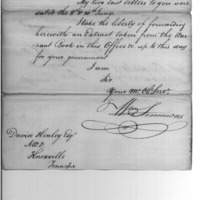 My two last letters to you were
dated the 8 & 10th June
I take the liberty of forwarding
herewith an Extract taken from the War
rant Book in this Office &c. up to this day
for your government
I am
Sir
Your Mo. Ob. Serv.
Wm Simmons
David Henley Esqr
Knoxville
Tennessee